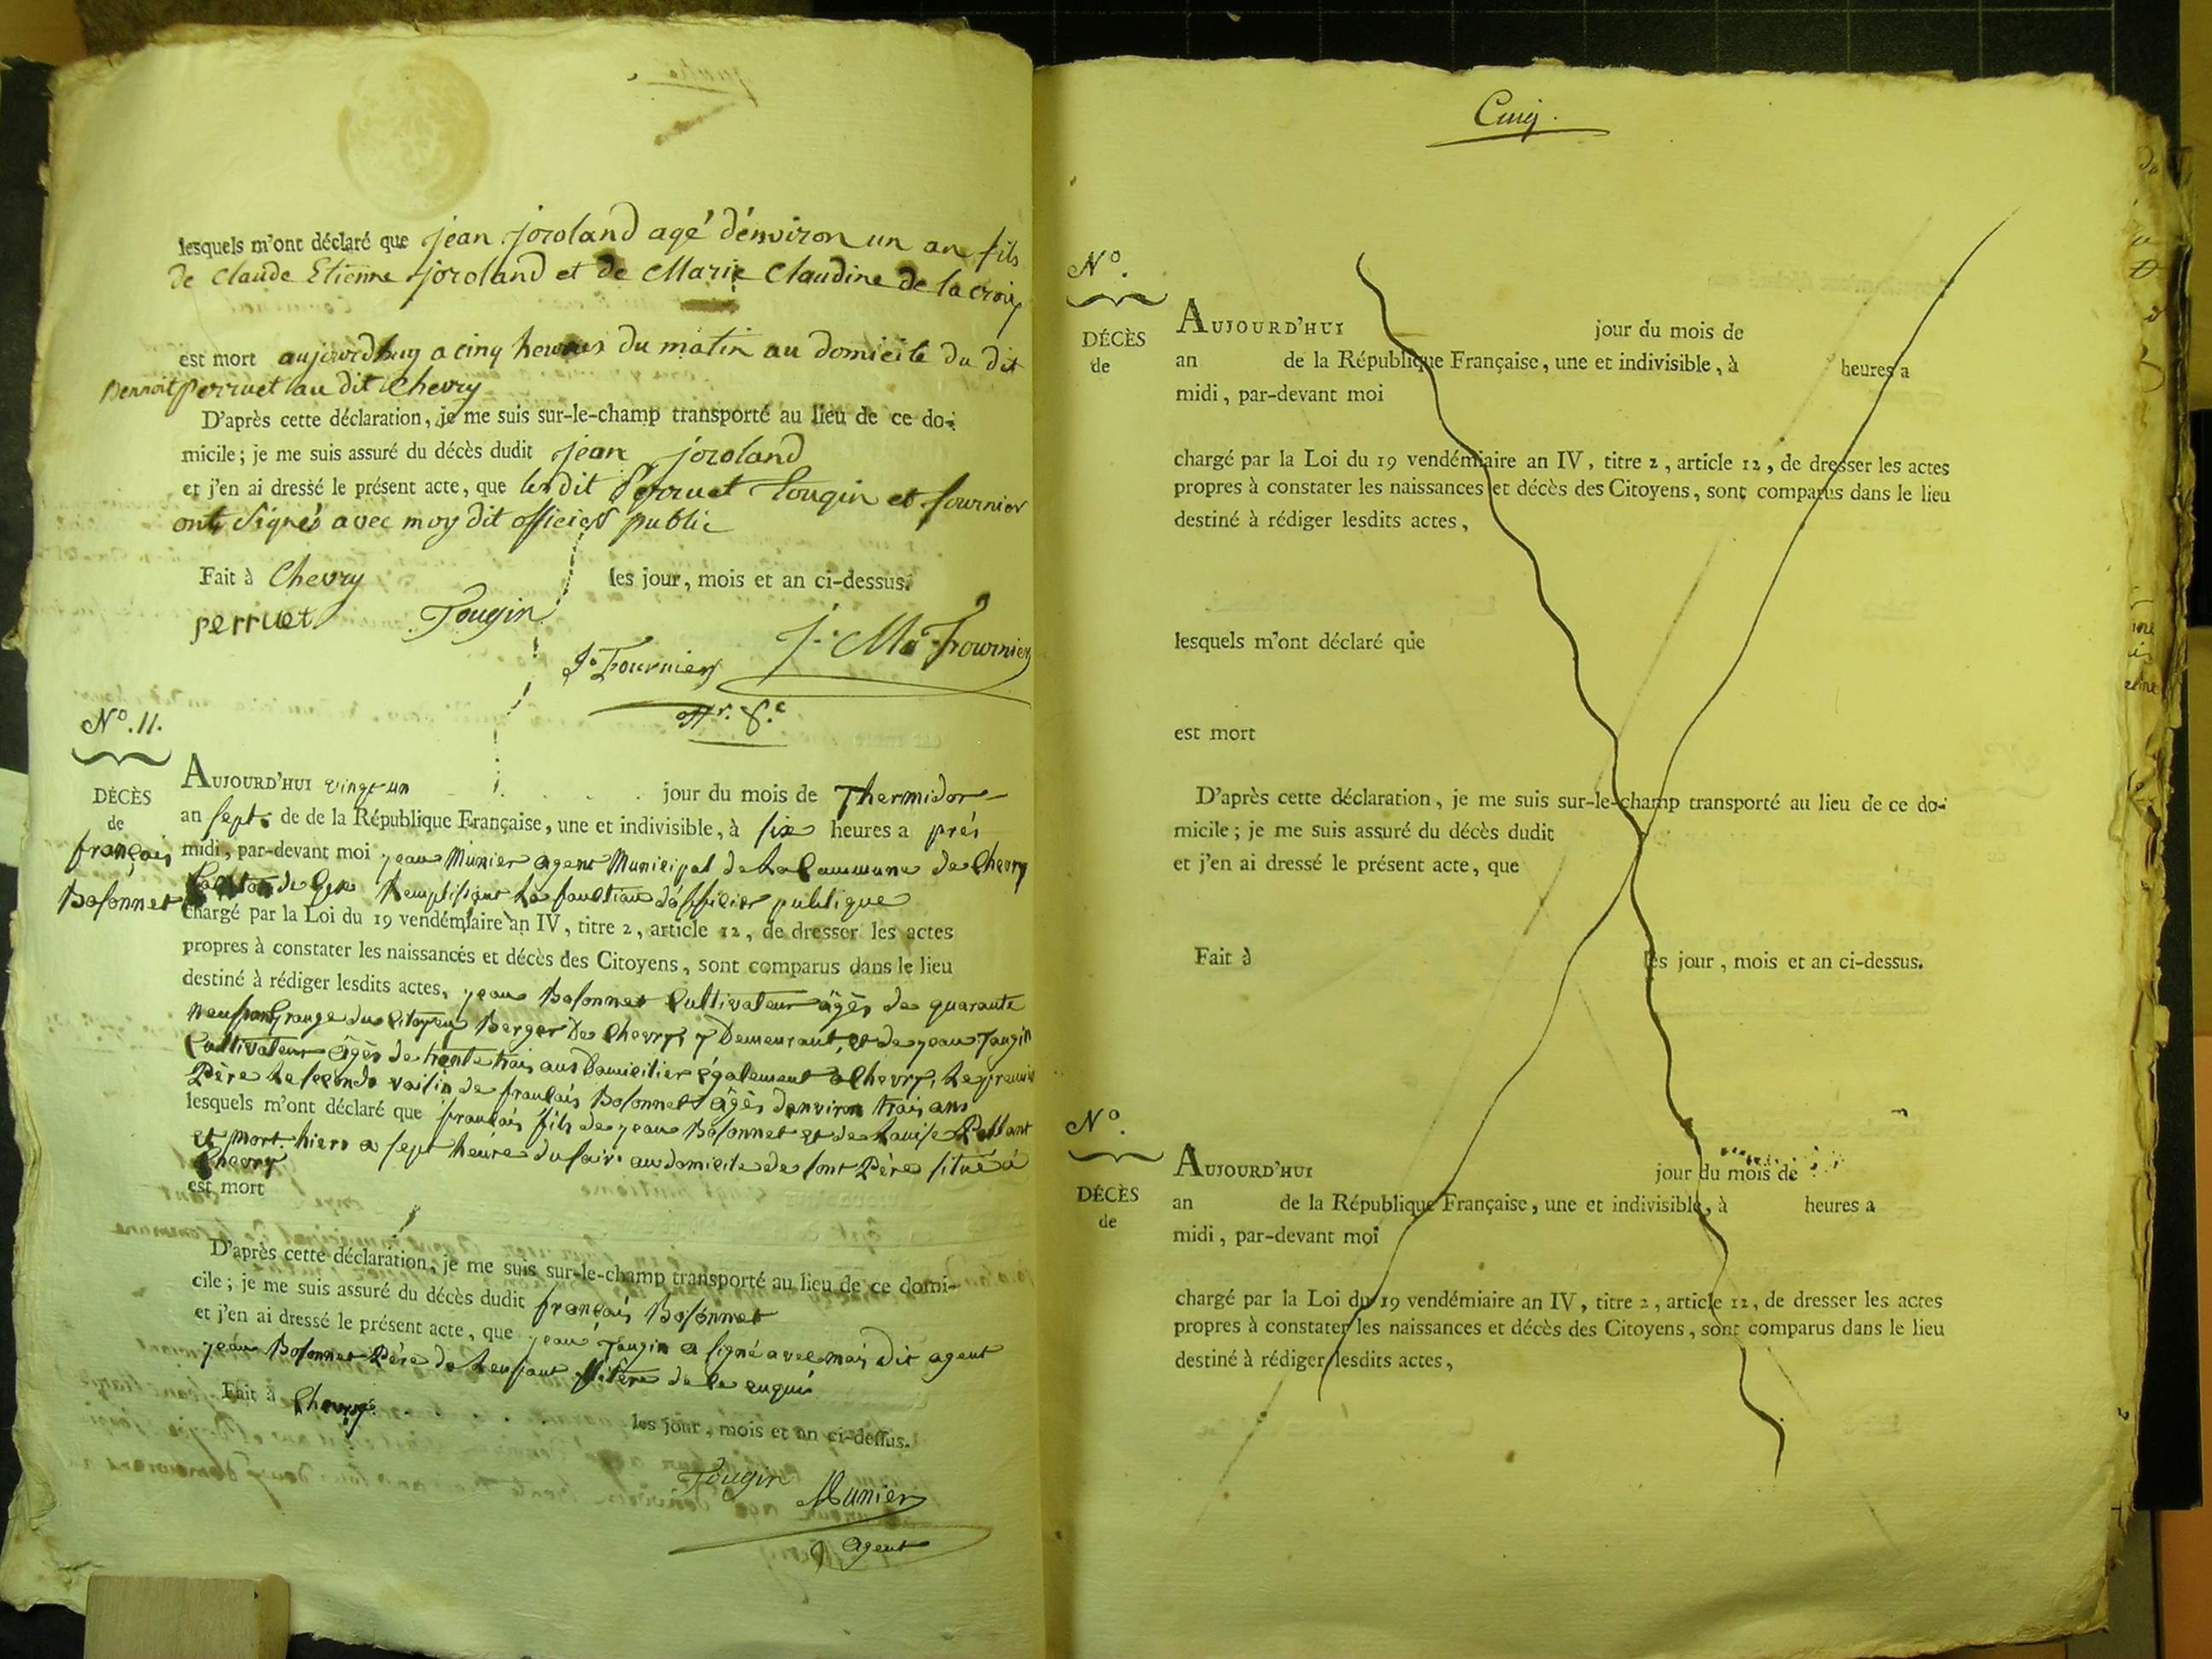 lesquels m'ont déclaré que jean joroland agé d'environ un an fils
de claude Etienne joroland et de Marie Claudine de la croix
est mort aujourdhuy a cinq heures du matin au domicile du dit
Bennoit perruet au dit Chevry
D'après cette déclaration, je me suis sur-le-champ transporté au lieu de ce do-
micile ; je me suis assuré du décès dudit jean joroland
et j'en ai dressé le présent acte, que les dit Perruet Tougin et fournier
ont signés avec moy dit officier public
Fait à Chevry les jour, mois et an ci-dessus.
perruet Tougin
J. Fournier J. Ma Fournier
offr. P.c
No. 11.
DÉCÈS
de
françois
Bosonnet
AUJOURD'HUI vingt un jour du mois de Thermidor
an sept de de la République Française, une et indivisible, à six heures a près
midi, par-devant moi jean Munier agent Municipal de La Commune de Chevry
Canton de Gex Remplissant La fonction d'officier publique
chargé par la Loi du 19 vendémiaire an IV, titre 2, article 12, de dresser les actes
propres à constater les naissances et décès des Citoyens, sont comparus dans le lieu
destiné à rédiger lesdits actes, jean Bosonnet Cultivateur âgés de quarante
neuf Grange du Citoyen Berger De Chevry y Demeurant, et de jean Tougin
Cultivateur âgés de trente trois ans Domicilier également a Chevry, Le premier
Père Le second voisin de françois Bosonnet âgés d'environ trois ans
lesquels m'ont déclaré que françois fils de jean Bosonnet et de Louise
et mort hiers a sept heure du soir au domicile de sont Père situé à
Chevry
est mort
D'après cette déclaration, je me suis sur-le-champ transporté au lieu de ce domi-
cile ; je me suis assuré du décès dudit françois Bosonnet
et j'en ai dressé le présent acte, que jean Tougin a signé avec moi dit agent
jean Bosonnet Père de Lenfant de ce enquis
Fait à Chevry les jour, mois et an ci-dessus.
Tougin Munier
agent
Cinq.
No.
DÉCÈS
de
AUJOURD'HUI jour du mois de
an de la République Française, une et indivisible, à heures a
midi, par-devant moi
chargé par la Loi du 19 vendémiaire an IV, titre 2, article 12, de dresser les actes
propres à constater les naissances et décès des Citoyens, sont comparus dans le lieu
destiné à rédiger lesdits actes,
lesquels m'ont déclaré que
est mort
D'après cette déclaration, je me suis sur-le-champ transporté au lieu de ce do-
micile ; je me suis assuré du décès dudit
et j'en ai dressé le présent acte, que
Fait à les jour, mois et an ci-dessus.
No.
DÉCÈS
de
AUJOURD'HUI jour du mois de
an de la République Française, une et indivisible, à heures a
midi, par-devant moi
chargé par la Loi du 19 vendémiaire an IV, titre 2, article 12, de dresser les actes
propres à constater les naissances et décès des Citoyens, sont comparus dans le lieu
destiné à rédiger lesdits actes,